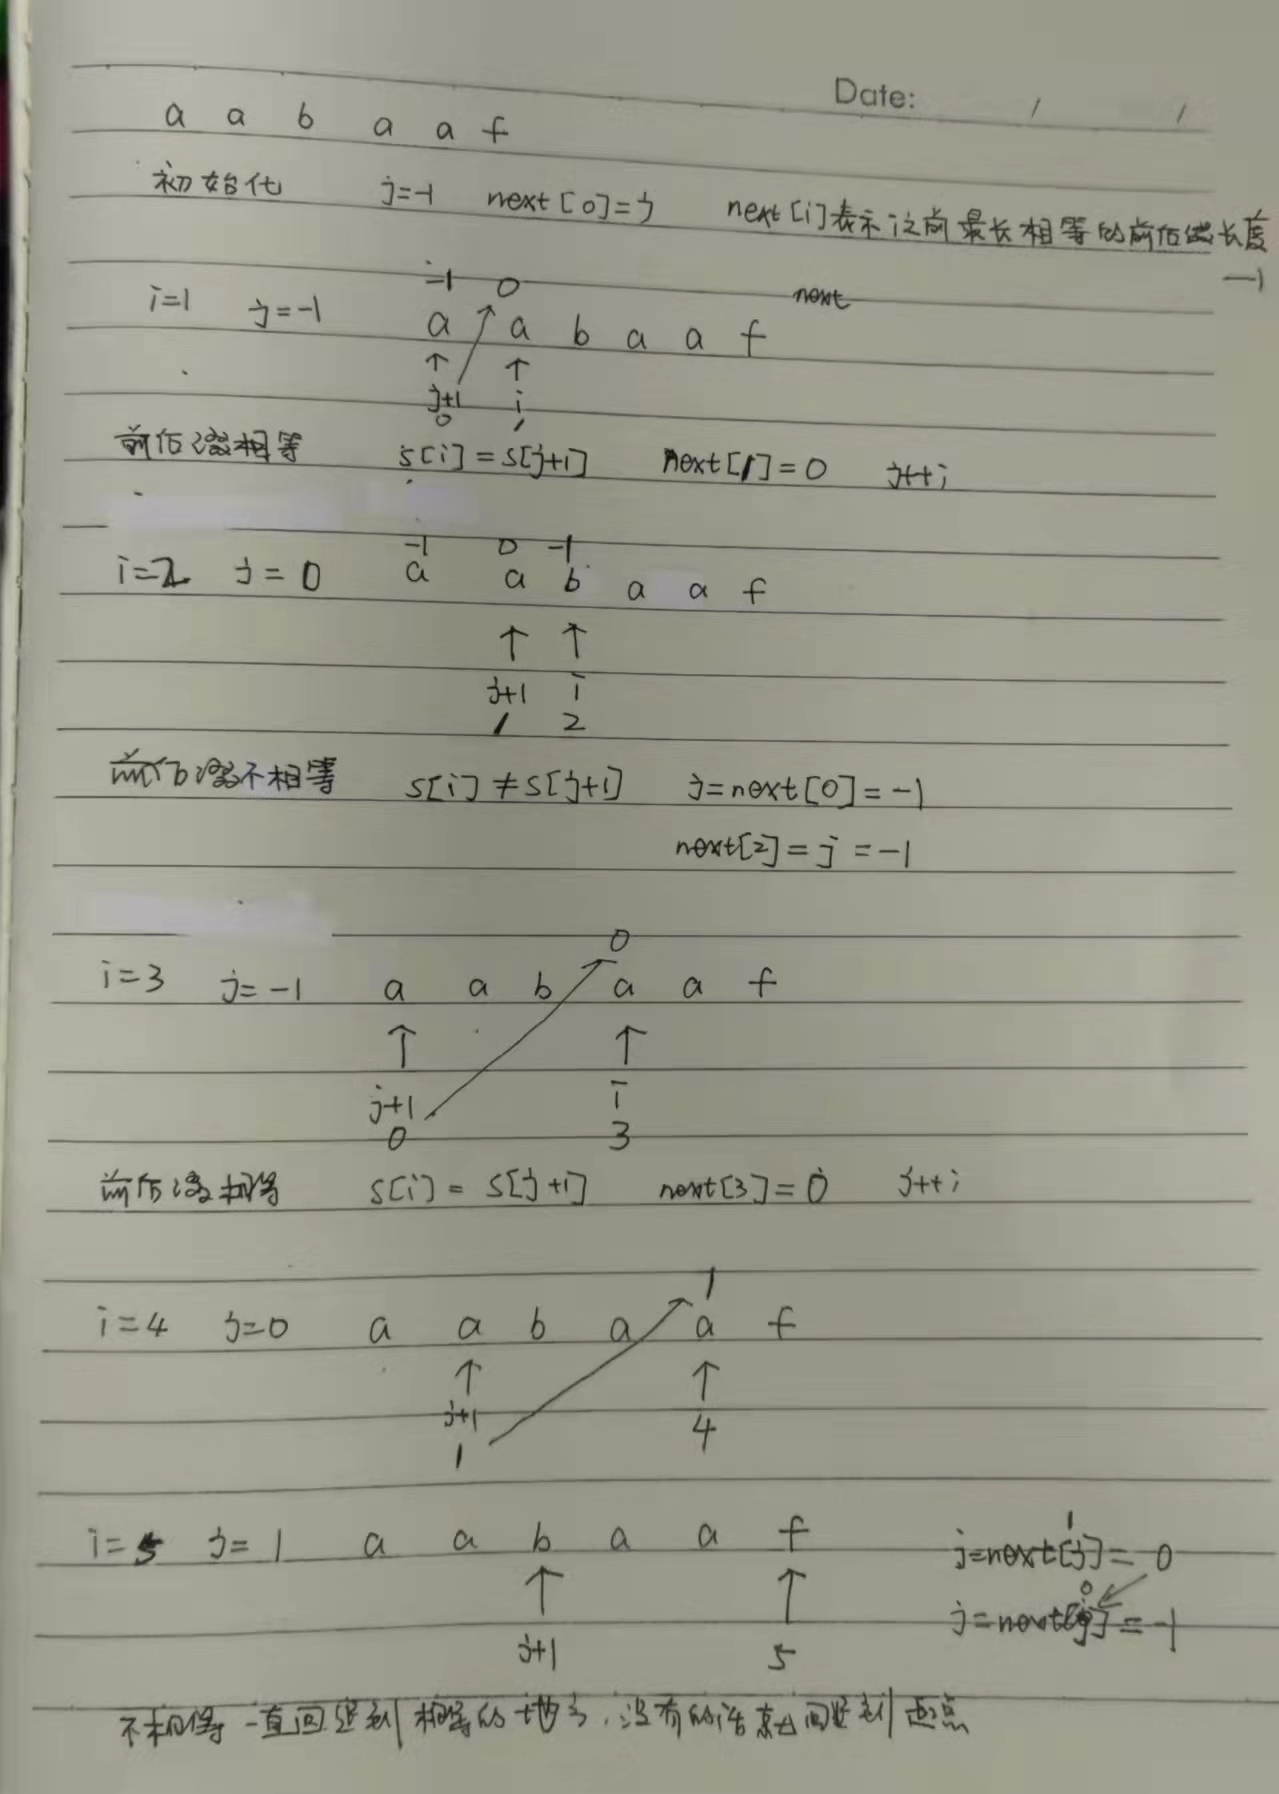 Date: / /
a a b a a f
初始化 j=-1 next[0]=j next[i]表示i之前最长相等的前后缀长度
-1
-1 0 next
i=1 j=-1 a a b a a f
↑ ↑
j+1 i
0 1
前后缀相等 s[i]=s[j+1] next[1]=0 j++;
-1 0 -1
i=2 j=0 a a b a a f
↑ ↑
j+1 i
1 2
前后缀不相等 s[i]≠s[j+1] j=next[0]=-1
next[2]=j=-1
0
i=3 j=-1 a a b a a f
↑ ↑
j+1 i
0 3
前后缀相等 s[i]=s[j+1] next[3]=0 j++;
1
i=4 j=0 a a b a a f
↑ ↑
j+1 4
1
i=5 j=1 a a b a a f
1
j=next[j]=0
↑ ↑
0
j=next[j]=-1
j+1 5
不相等一直回退到相等的地方,没有的话就回退到起点